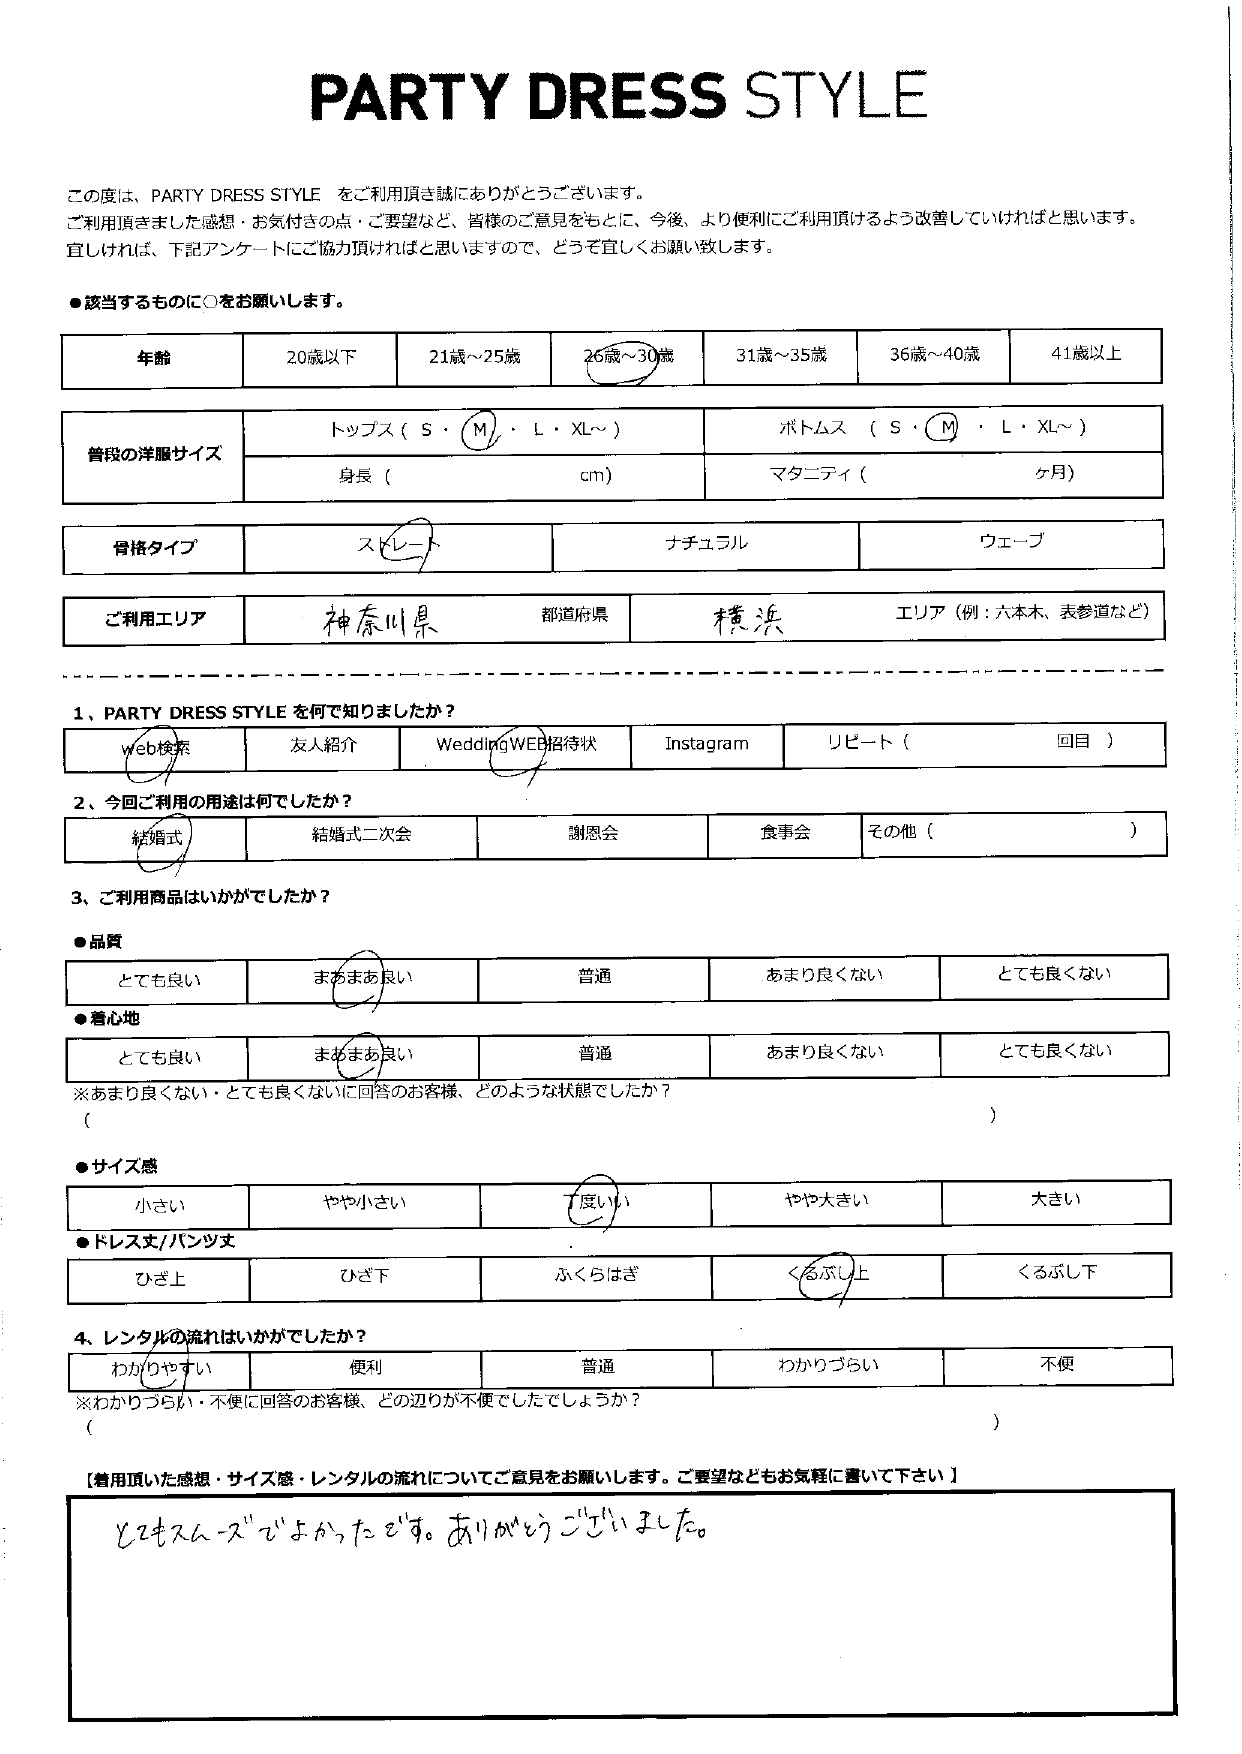 PARTY DRESS STYLE
この度は、PARTY DRESS STYLE　をご利用頂き誠にありがとうございます。
ご利用頂きました感想・お気付きの点・ご要望など、皆様のご意見をもとに、今後、より便利にご利用頂けるよう改善していければと思います。
宜しければ、下記アンケートにご協力頂ければと思いますので、どうぞ宜しくお願い致します。
●該当するものに○をお願いします。
年齢 20歳以下 21歳～25歳 26歳～30歳 31歳～35歳 36歳～40歳 41歳以上
普段の洋服サイズ トップス ( S ・ M ・ L ・ XL～ ) ボトムス ( S ・ M ・ L ・ XL～ )
身長 ( cm) マタニティ ( ヶ月)
骨格タイプ ストレート ナチュラル ウェーブ
ご利用エリア 神奈川県 都道府県 横浜 エリア（例：六本木、表参道など）
1、PARTY DRESS STYLE を何で知りましたか？
web検索 友人紹介 WeddingWEB招待状 Instagram リピート（ 回目 ）
2、今回ご利用の用途は何でしたか？
結婚式 結婚式二次会 謝恩会 食事会 その他（ ）
3、ご利用商品はいかがでしたか？
●品質
とても良い まあまあ良い 普通 あまり良くない とても良くない
●着心地
とても良い まあまあ良い 普通 あまり良くない とても良くない
※あまり良くない・とても良くないに回答のお客様、どのような状態でしたか？
（ ）
●サイズ感
小さい やや小さい 丁度いい やや大きい 大きい
●ドレス丈/パンツ丈
ひざ上 ひざ下 ふくらはぎ くるぶし上 くるぶし下
4、レンタルの流れはいかがでしたか？
わかりやすい 便利 普通 わかりづらい 不便
※わかりづらい・不便に回答のお客様、どの辺りが不便でしたでしょうか？
（ ）
【着用頂いた感想・サイズ感・レンタルの流れについてご意見をお願いします。ご要望などもお気軽に書いて下さい 】
とてもスムーズでよかったです。ありがとうございました。